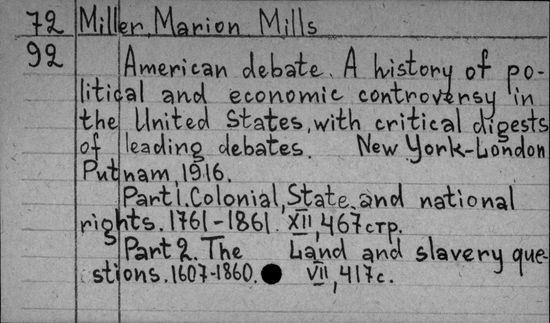 72 Miller, Marion Mills
92 American debate. A history of po-
litical and economic controversy in
the United States, with critical digests
of leading debates. New York-London
Putnam, 1916.
Part 1. Colonial, State, and national
rights. 1761-1861. XII, 467 стр.
Part 2. The Land and slavery que-
stions. 1607-1860. VII, 417 с.